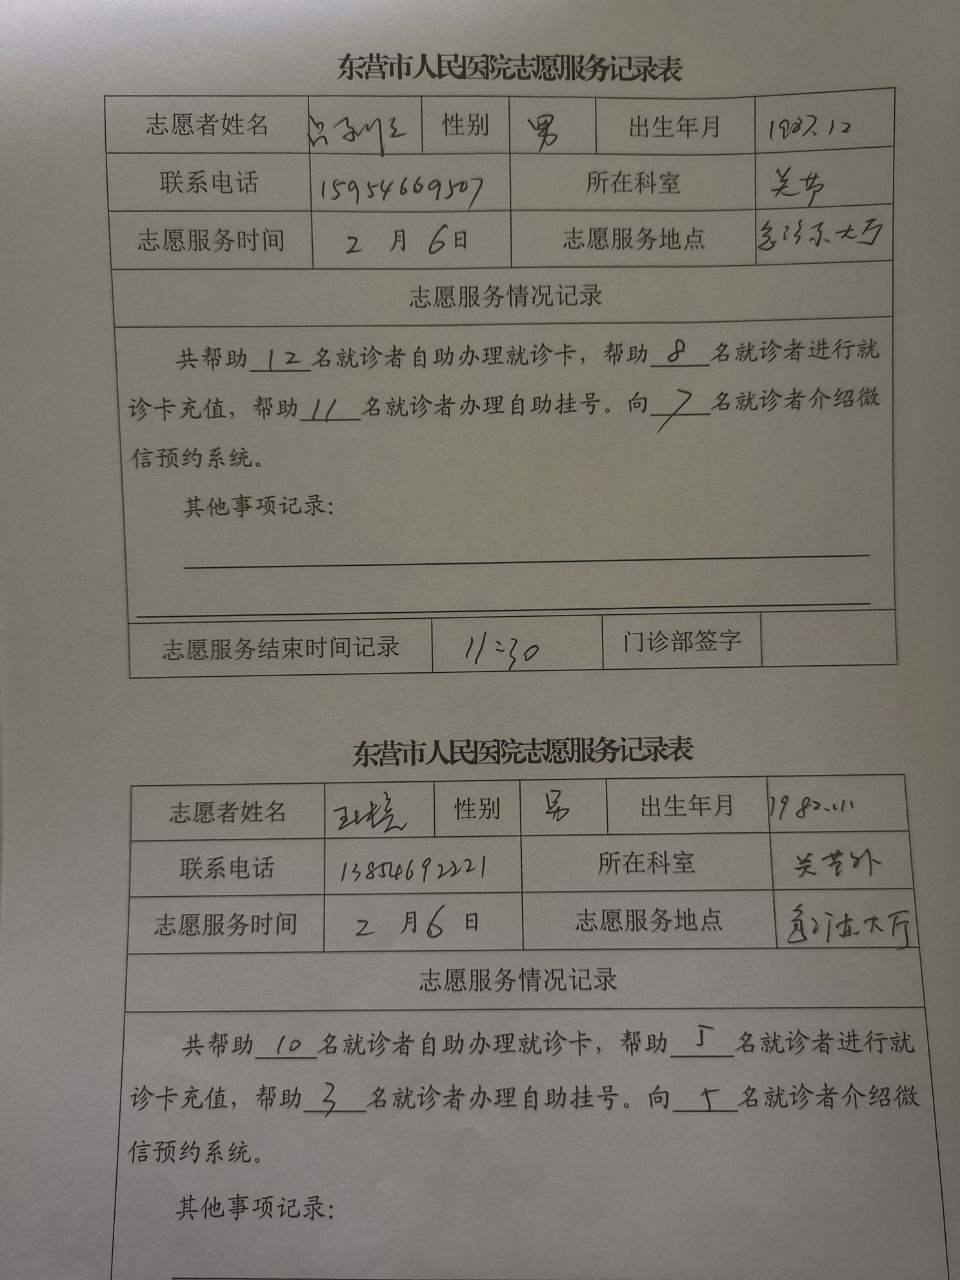 东营市人民医院志愿服务记录表
志愿者姓名 性别 男 出生年月 1987.12
联系电话 15954669507 所在科室 关节
志愿服务时间 2 月 6 日 志愿服务地点 急诊大厅
志愿服务情况记录
共帮助 12 名就诊者自助办理就诊卡，帮助 8 名就诊者进行就
诊卡充值，帮助 11 名就诊者办理自助挂号。向 7 名就诊者介绍微
信预约系统。
其他事项记录：
志愿服务结束时间记录 11:30 门诊部签字
东营市人民医院志愿服务记录表
志愿者姓名 性别 男 出生年月 1982.11
联系电话 13854692221 所在科室 关节外
志愿服务时间 2 月 6 日 志愿服务地点 大厅
志愿服务情况记录
共帮助 10 名就诊者自助办理就诊卡，帮助 5 名就诊者进行就
诊卡充值，帮助 3 名就诊者办理自助挂号。向 5 名就诊者介绍微
信预约系统。
其他事项记录：